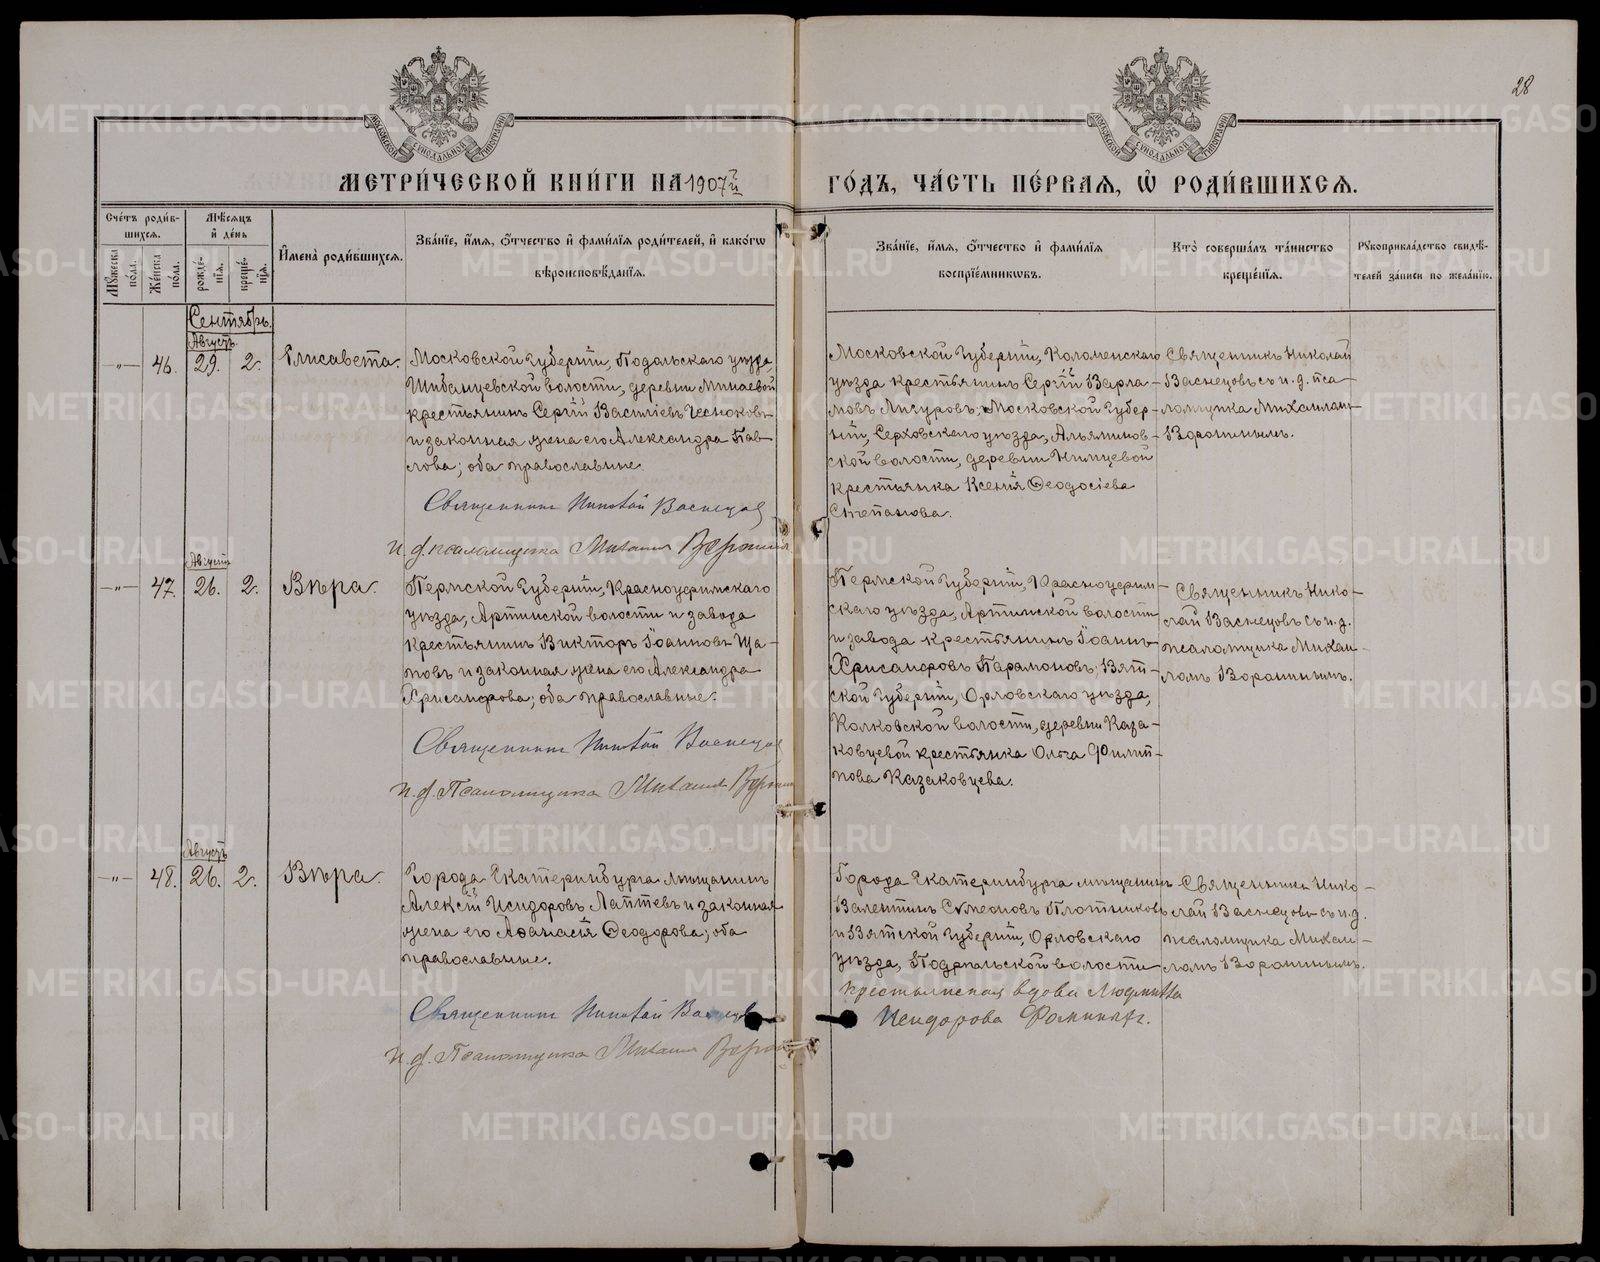 28
МОСКОВСКОЙ СѴНОДАЛЬНОЙ ТИПОГРАФІИ
МОСКОВСКОЙ СѴНОДАЛЬНОЙ ТИПОГРАФІИ
МЕТРИ́ЧЕСКОЙ КНИ́ГИ НА 1907й
ГО́ДЪ, ЧА́СТЬ ПЕ́РВАЯ, Ѡ РОДИ́ВШИХСЯ.
Сче́тъ роди́в-
шихся.
Мѣ́сяцъ
и҆ де́нь
Мꙋ́жеска по́ла.
Же́нска по́ла.
рожде́-
нїя.
креще́-
нїя.
И҆мена̀ роди́вшихся.
Зва́нїе, и҆́мя, ѻ҆́тчество и҆ фами́лїя роди́телей, и҆ како́гѡ
вѣроисповѣ́данїя.
Зва́нїе, и҆́мя, ѻ҆́тчество и҆ фами́лїя
воспрїе́мникѡвъ.
Кто̀ соверша́лъ та́инство
креще́нїя.
Рꙋкоприкла́дство свидѣ́-
телей за́писи по жела́нїю.
Сентябрь.
Августъ.
-"- 46. 29. 2. Елисавета.
Московской Губерніи, Подольскаго уѣзда,
Шебанцевской волости, деревни Минаевой
крестьянинъ Сергій Василіевъ Чесноковъ
и законная жена его Александра Пав-
лова; оба православные.
Священникъ Николай Васнецовъ
и. д. псаломщика Михаилъ Воронинъ
Московской Губерніи, Коломенскаго
уѣзда крестьянинъ Сергій Варла-
мовъ Лигуровъ; Московской Губер-
ніи, Серховскаго уѣзда, Альяминов-
ской волости, деревни Нимцевой
крестьянка Ксенія Ѳеодосіева
Степанова.
Священникъ Николай
Васнецовъ съ и. д. пса-
ломщика Михаиломъ
Воронинымъ.
Августъ
-"- 47. 26. 2. Вѣра.
Пермской Губерніи, Красноуфимскаго
уѣзда, Артинской волости и завода
крестьянинъ Викторъ Іоанновъ Ща-
повъ и законная жена его Александра
Хрисанфова; оба православные.
Священникъ Николай Васнецовъ
и. д. Псаломщика Михаилъ Воронинъ
Пермской Губерніи, Красноуфим-
скаго уѣзда, Артинской волости
и завода крестьянинъ Іоаннъ
Хрисанфовъ Парамоновъ; Вят-
ской Губерніи, Орловскаго уѣзда,
Колковской волости, деревни Каза-
ковцевой крестьянка Ольга Филип-
пова Казаковцева.
Священникъ Нико-
лай Васнецовъ съ и. д.
псаломщика Михаи-
ломъ Воронинымъ.
Августъ
-"- 48. 26. 2. Вѣра.
Города Екатеринбурга мѣщанинъ
Алексій Исидоровъ Лаптевъ и законная
жена его Аѳанасія Ѳеодорова; оба
православные.
Священникъ Николай Васнецовъ
и. д. Псаломщика Михаилъ Воронинъ
Города Екатеринбурга мѣщанинъ
Валентинъ Сѵмеоновъ Плотниковъ
и Вятской Губерніи, Орловскаго
уѣзда, Подрельской волости
крестьянская вдова Людмилла
Исидорова Фоминыхъ.
Священникъ Нико-
лай Васнецовъ съ и. д.
псаломщика Михаи-
ломъ Воронинымъ.
METRIKI.GASO-URAL.RU